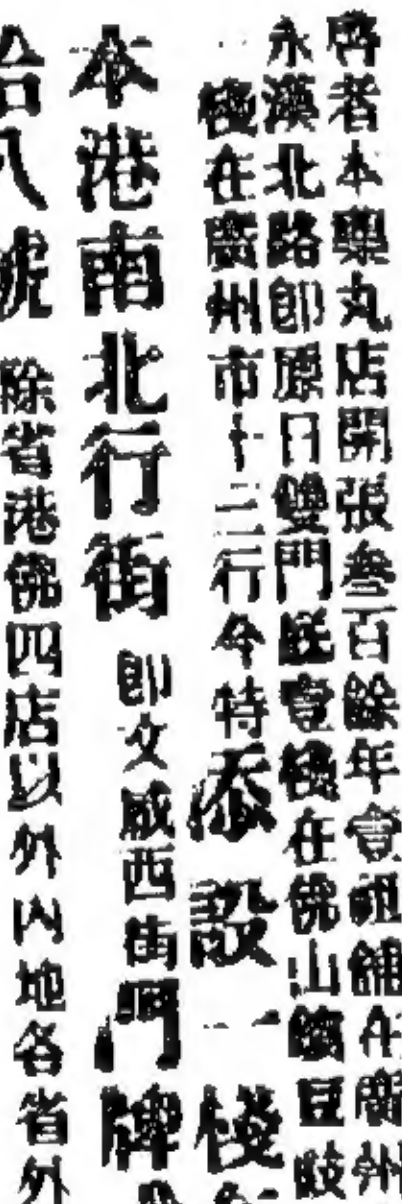 啓者本藥丸店開張叁百餘年壹祖舖在廣州
永漢北路卽原日雙門底壹棧在佛山鎮豆豉
棧在廣州市十三行今特添設一棧
本港南北行街卽文咸西街門牌
拾八號除省港佛四店以外內地各省外